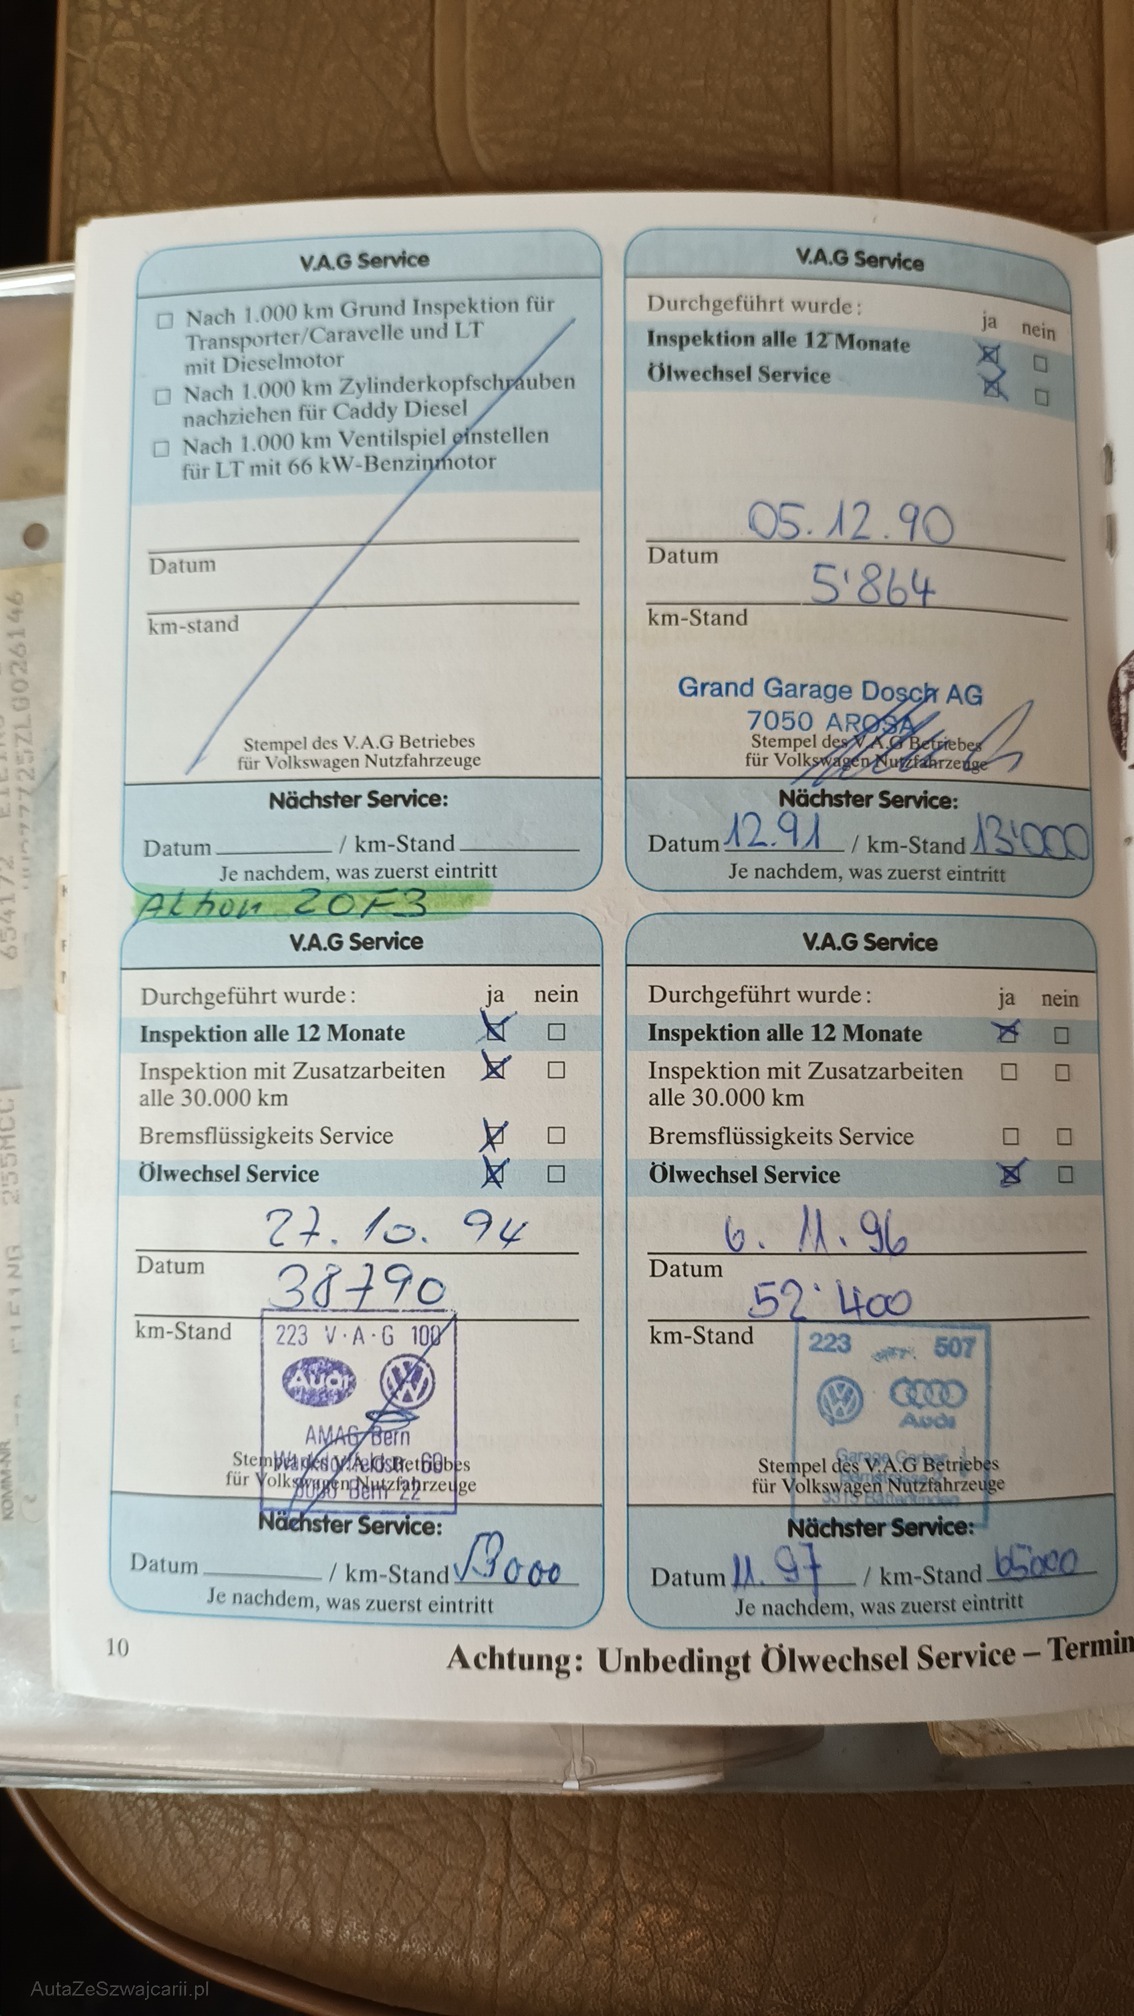 V.A.G Service
Nach 1.000 km Grund Inspektion für
Transporter/Caravelle und LT
mit Dieselmotor
Nach 1.000 km Zylinderkopfschrauben
nachziehen für Caddy Diesel
Nach 1.000 km Ventilspiel einstellen
für LT mit 66 kW-Benzinmotor
Datum
km-stand
Stempel des V.A.G Betriebes
für Volkswagen Nutzfahrzeuge
Nächster Service:
Datum / km-Stand
Je nachdem, was zuerst eintritt
V.A.G Service
Durchgeführt wurde:
ja nein
Inspektion alle 12 Monate
Ölwechsel Service
05.12.90
Datum
5'864
km-Stand
Grand Garage Dosch AG
7050 AROSA
Stempel des V.A.G Betriebes
für Volkswagen Nutzfahrzeuge
Nächster Service:
Datum 12.91 / km-Stand 13'000
Je nachdem, was zuerst eintritt
Aktion 20F3
V.A.G Service
Durchgeführt wurde: ja nein
Inspektion alle 12 Monate
Inspektion mit Zusatzarbeiten
alle 30.000 km
Bremsflüssigkeits Service
Ölwechsel Service
27. 10. 94
Datum
38790
km-Stand
223 V·A·G 100
Audi
AMAG Bern
Stempel des V.A.G Betriebes
für Volkswagen Nutzfahrzeuge
Bern 22
Nächster Service:
Datum / km-Stand
Je nachdem, was zuerst eintritt
V.A.G Service
Durchgeführt wurde: ja nein
Inspektion alle 12 Monate
Inspektion mit Zusatzarbeiten
alle 30.000 km
Bremsflüssigkeits Service
Ölwechsel Service
6. 11. 96
Datum
52'400
km-Stand
223 507
Audi
Stempel des V.A.G Betriebes
für Volkswagen Nutzfahrzeuge
Nächster Service:
Datum 11. 97 / km-Stand 65000
Je nachdem, was zuerst eintritt
10
Achtung: Unbedingt Ölwechsel Service – Termin
KOMM-NR
AutaZeSzwajcarii.pl